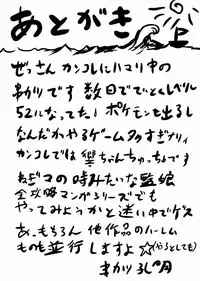 あとがき
ぜっさんカンコレにハマり中の
まかりです 数日でていとくレベル
52になってた! ポケモンも出るし
なんだかやるゲーム多すぎナリィ
カンコレでは響ちゃんちゅっちゅです
ねぎマの時みたいな監娘
全攻略マンガシリーズでも
やってみようかと迷い中でゲス
あ、もちろん他作品のハーレム
ものも並行しますよ☆(やるとしても)
まかり